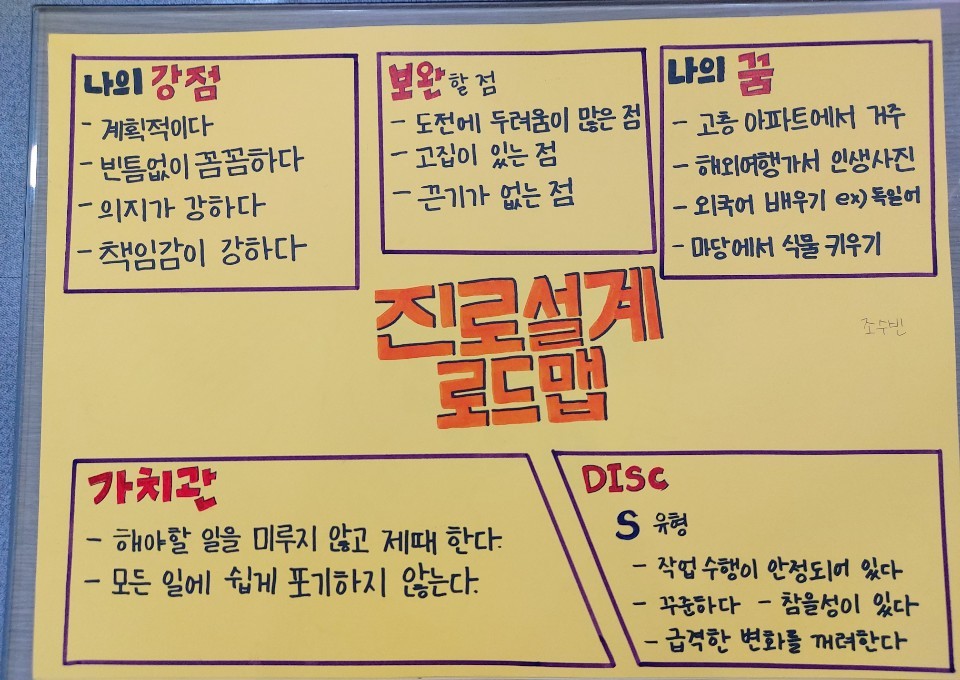 나의 강점
- 계획적이다
- 빈틈없이 꼼꼼하다
- 의지가 강하다
- 책임감이 강하다
보완할 점
- 도전에 두려움이 많은 점
- 고집이 있는 점
- 끈기가 없는 점
나의 꿈
- 고층 아파트에서 거주
- 해외여행가서 인생사진
- 외국어 배우기 ex) 독일어
- 마당에서 식물 키우기
진로설계
로드맵
조수빈
가치관
- 해야할 일을 미루지 않고 제때 한다.
- 모든 일에 쉽게 포기하지 않는다.
DISC
S 유형
- 작업 수행이 안정되어 있다
- 꾸준하다 - 참을성이 있다
- 급격한 변화를 꺼려한다